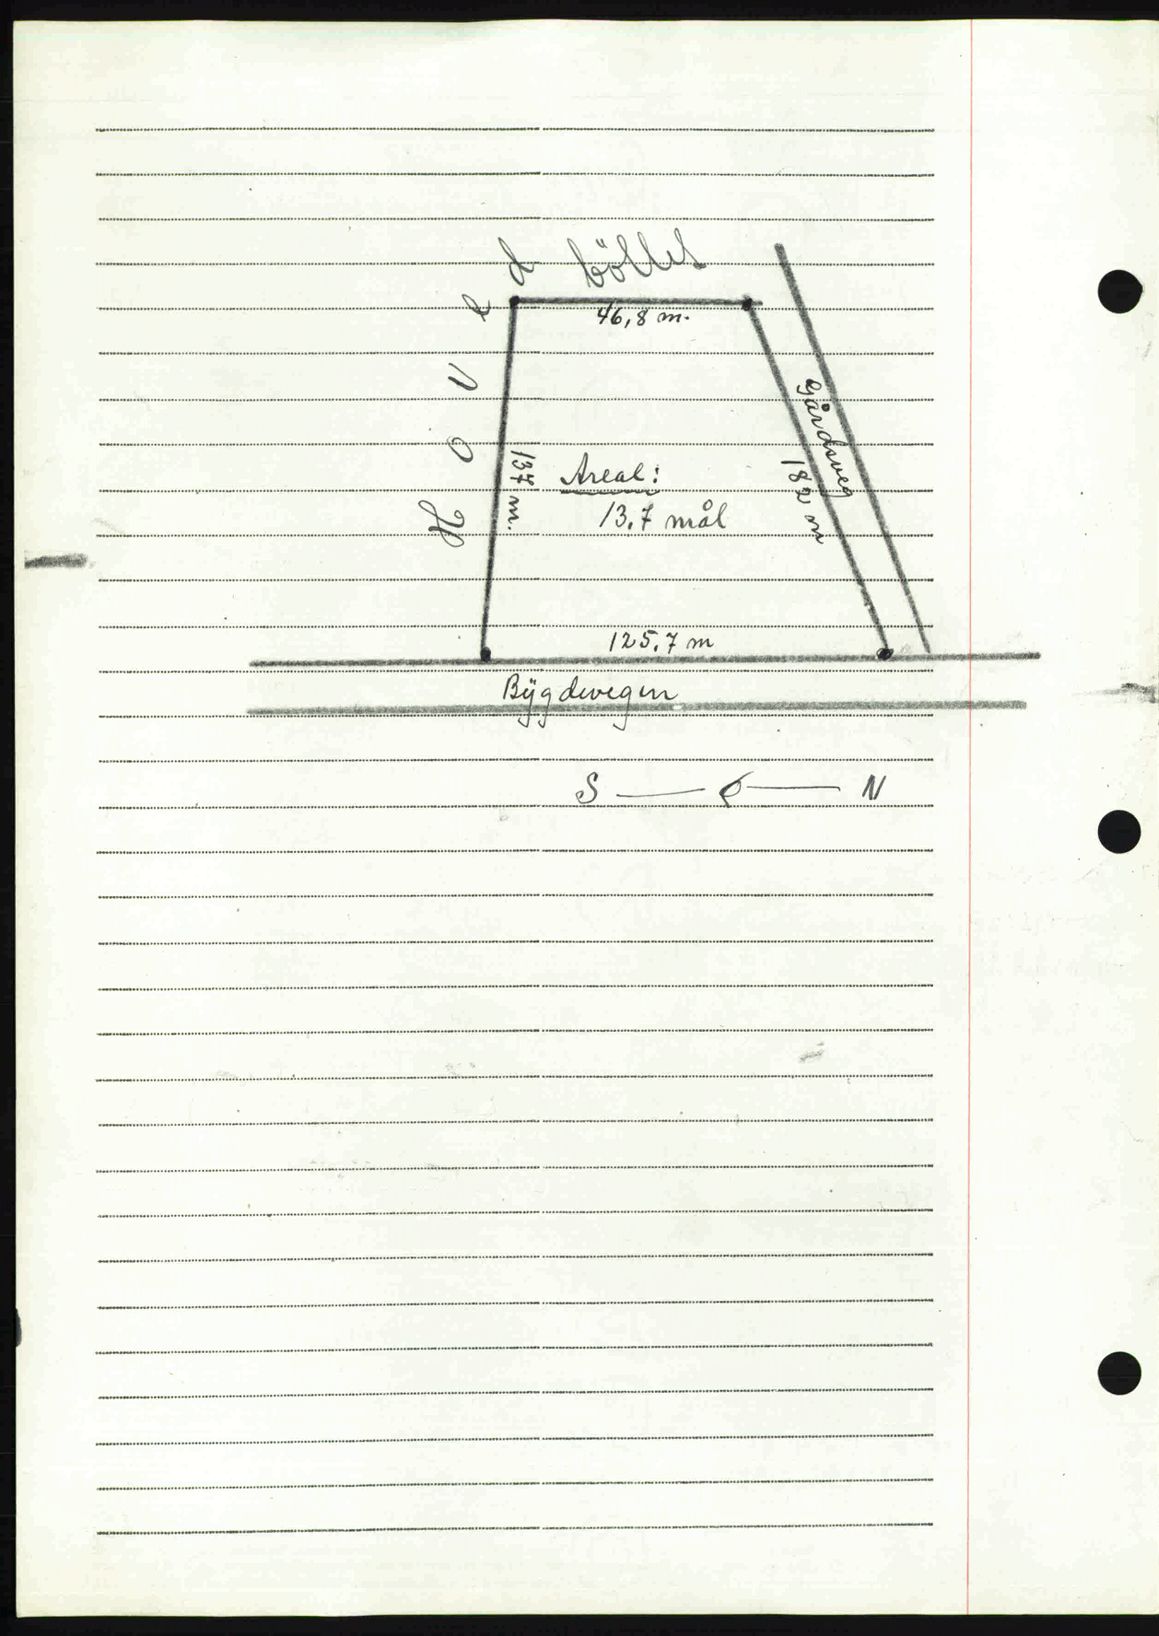 Hovedbölet
46,8 m.
Gårdsveg
137 m.
Areal:
13,7 mål
182 m
125,7 m
Bÿgdevegen
S N